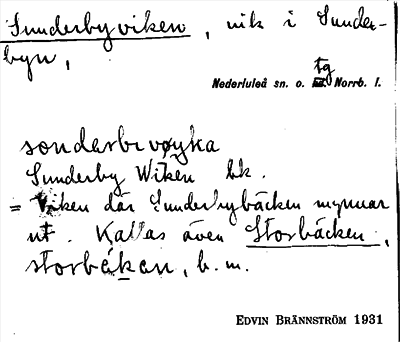 Sunderbyviken, vik i Sunder-
byn,
tg
Nederluleå sn. o. Norrb. l.
sondərbivøyka
Sunderby Wiken Ek.
= Viken där Sunderbybäcken mynnar
ut. Kallas även Storbäcken,
storbekən, b. m.
EDVIN BRÄNNSTRÖM 1931